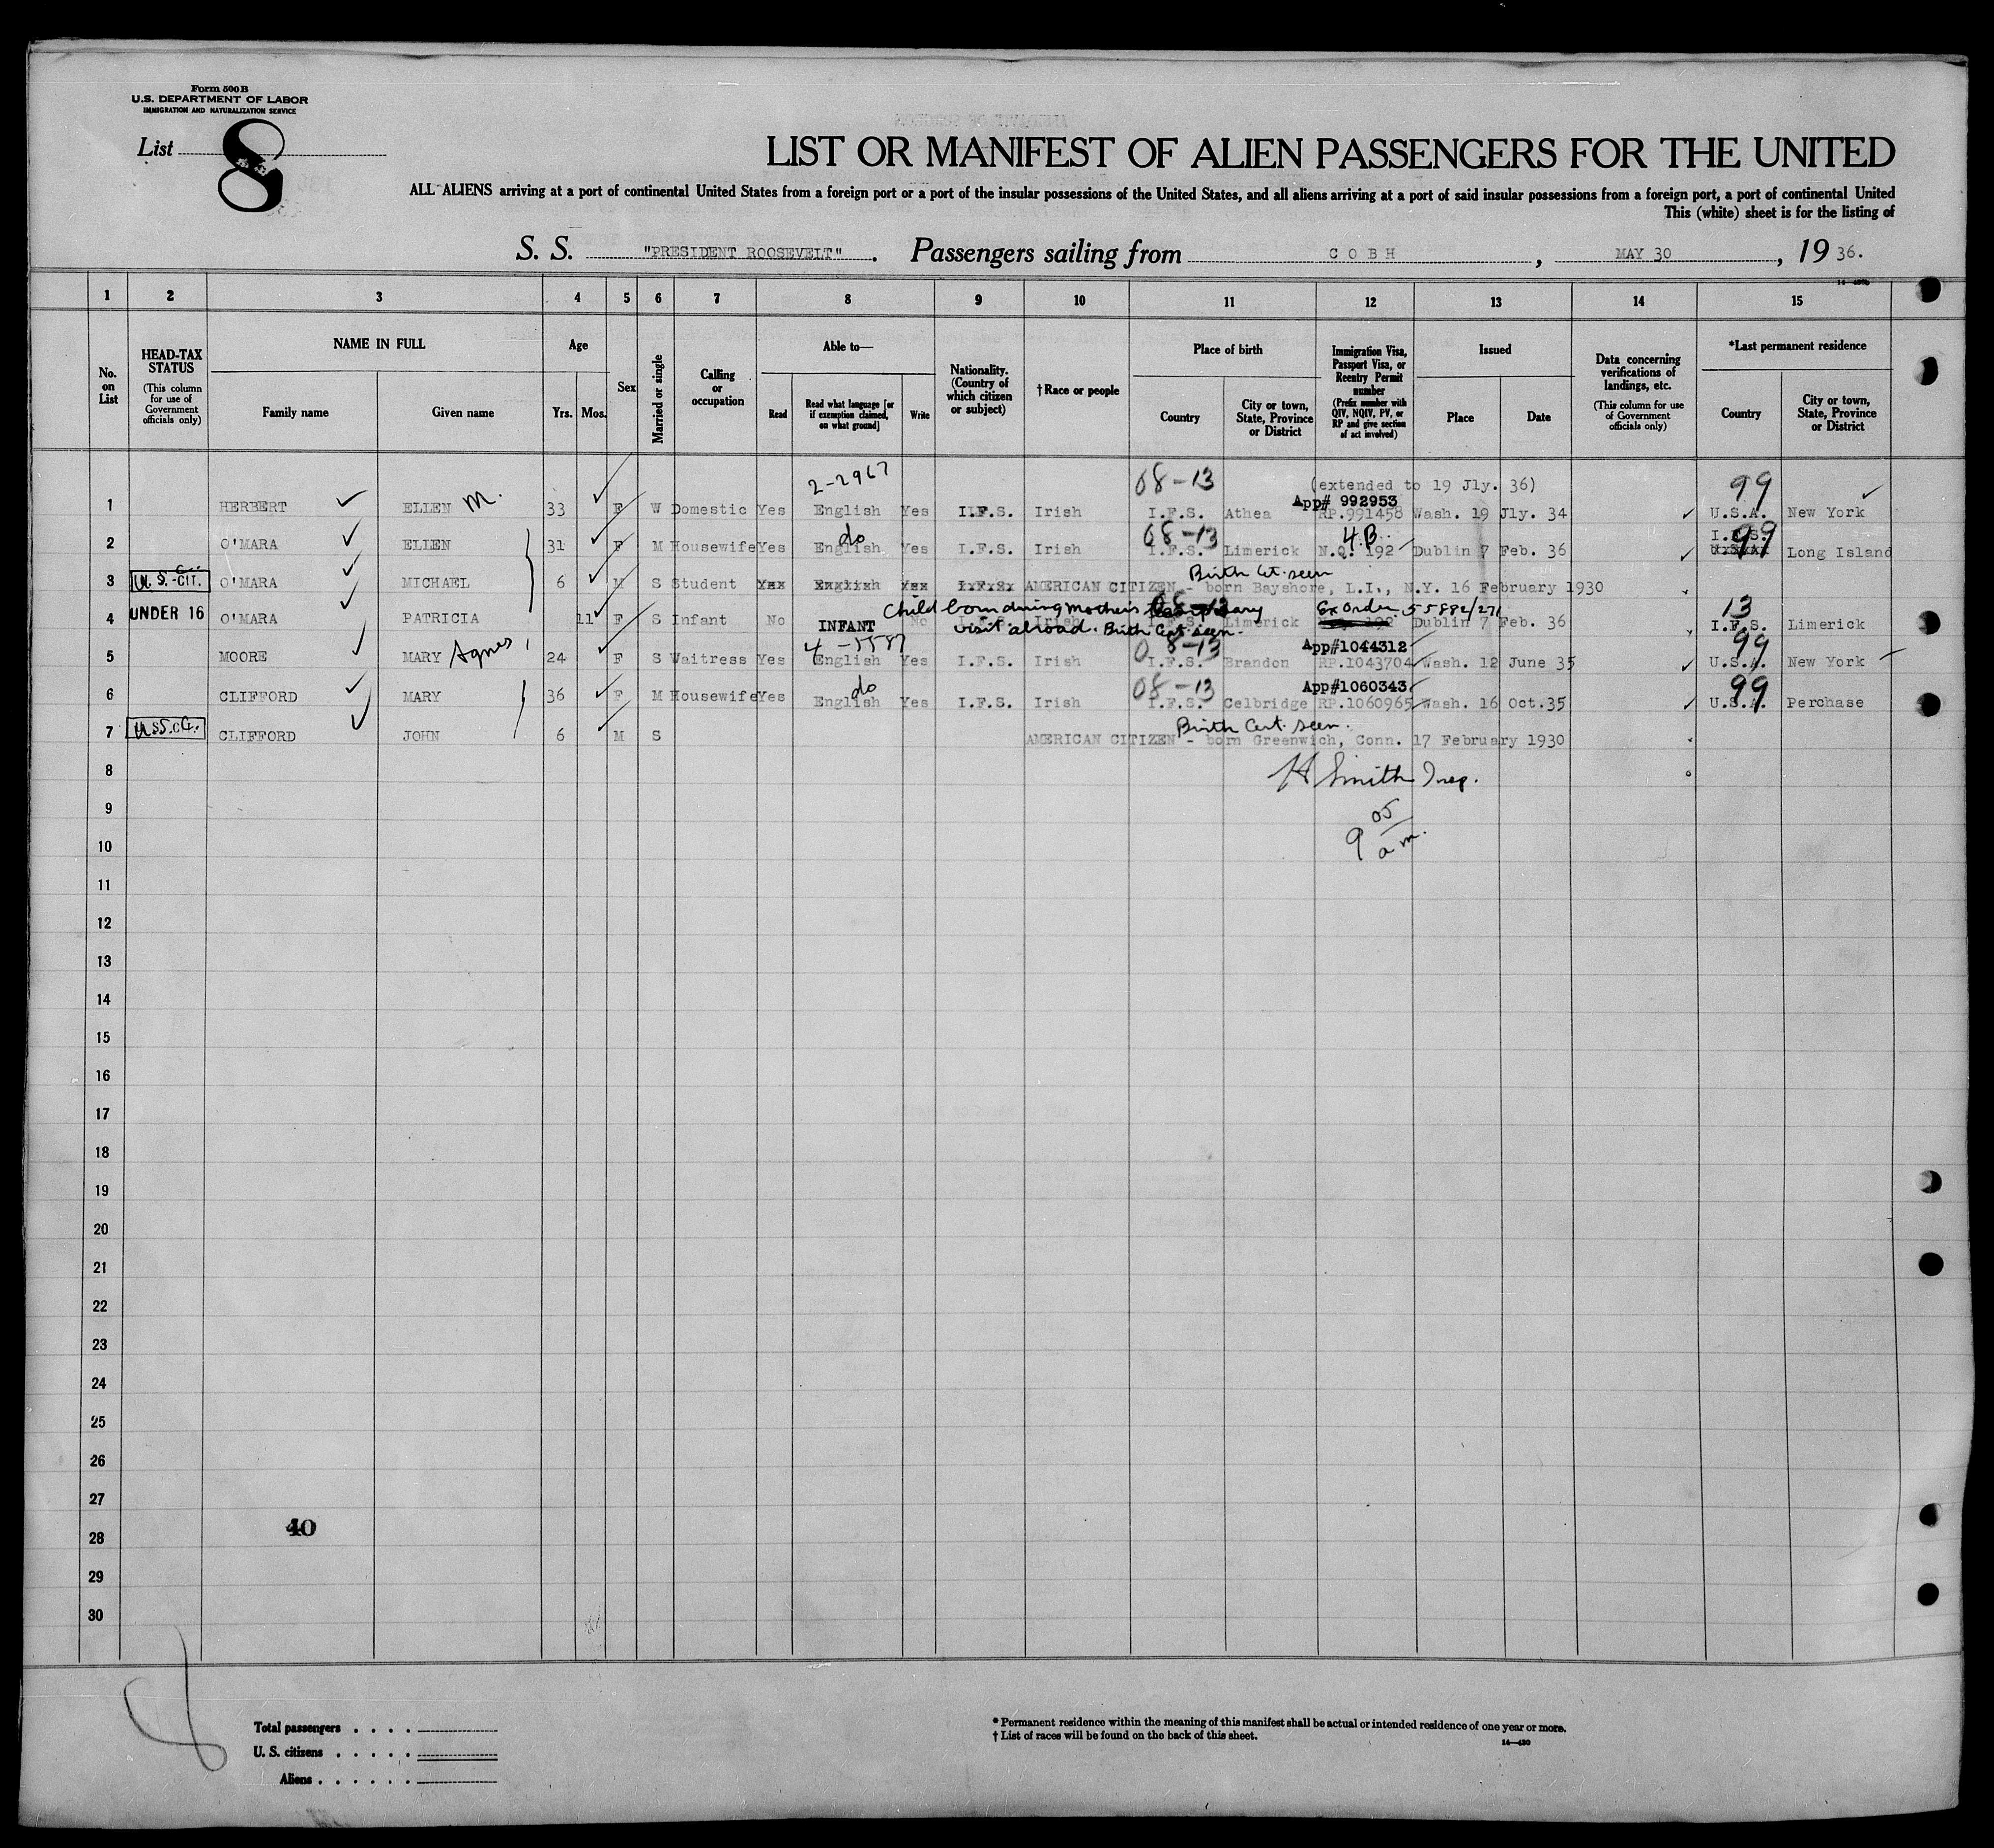 Form 500 B
U.S. DEPARTMENT OF LABOR
IMMIGRATION AND NATURALIZATION SERVICE
List 8
LIST OR MANIFEST OF ALIEN PASSENGERS FOR THE UNITED
ALL ALIENS arriving at a port of continental United States from a foreign port or a port of the insular possessions of the United States, and all aliens arriving at a port of said insular possessions from a foreign port, a port of continental United
This (white) sheet is for the listing of
S. S. "PRESIDENT ROOSEVELT". Passengers sailing from COBH, MAY 30, 1936.
1 2 3 4 5 6 7 8 9 10 11 12 13 14 15
No. on List
HEAD-TAX STATUS
(This column for use of Government officials only)
NAME IN FULL
Family name
Given name
Age
Yrs. Mos.
Sex
Married or single
Calling or occupation
Able to—
Read
Read what language [or if exemption claimed, on what ground]
Write
Nationality. (Country of which citizen or subject)
† Race or people
Place of birth
Country
City or town, State, Province or District
Immigration Visa, Passport Visa, or Reentry Permit number
(Prefix number with QIV, NQIV, PV, or RP and give section of act involved)
Issued
Place
Date
Data concerning verifications of landings, etc.
(This column for use of Government officials only)
*Last permanent residence
Country
City or town, State, Province or District
2-2967 08-13 (extended to 19 Jly. 36) 99
App# 992953
1 HERBERT ELLEN M. 33 F W Domestic Yes English Yes I.F.S. Irish I.F.S. Athea RP.991458 Wash. 19 Jly. 34 U.S.A. New York
do 08-13 4B I.F.S. 99
2 O'MARA ELLEN 31 F M Housewife Yes English Yes I.F.S. Irish I.F.S. Limerick N.Q. 192 Dublin 7 Feb. 36 U.S.A. Long Island
Birth Ct. seen
3 U.S.C. U.S.-CIT. O'MARA MICHAEL 6 M S Student Yes English Yes I.F.S. AMERICAN CITIZEN - born Bayshore, L.I., N.Y. 16 February 1930
Child born during mother's temporary 08-13 Ex Order 55882/271 13
4 UNDER 16 O'MARA PATRICIA 11 F S Infant No INFANT No I.F.S. Irish I.F.S. Limerick N.Q. 192 Dublin 7 Feb. 36 I.F.S. Limerick
visit abroad. Birth Cert. seen.
4-5587 08-13 App#1044312 99
5 MOORE MARY Agnes 24 F S Waitress Yes English Yes I.F.S. Irish I.F.S. Brandon RP.1043704 Wash. 12 June 35 U.S.A. New York
do 08-13 App#1060343 99
6 CLIFFORD MARY 36 F M Housewife Yes English Yes I.F.S. Irish I.F.S. Celbridge RP.1060965 Wash. 16 Oct.35 U.S.A. Purchase
Birth Cert. seen.
7 CLIFFORD JOHN 6 M S AMERICAN CITIZEN - born Greenwich, Conn. 17 February 1930
8 H Smith Insp.
9
10 9 05 a.m.
11
12
13
14
15
16
17
18
19
20
21
22
23
24
25
26
27
28 40
29
30
Total passengers
U. S. citizens
Aliens
* Permanent residence within the meaning of this manifest shall be actual or intended residence of one year or more.
† List of races will be found on the back of this sheet.
14—430